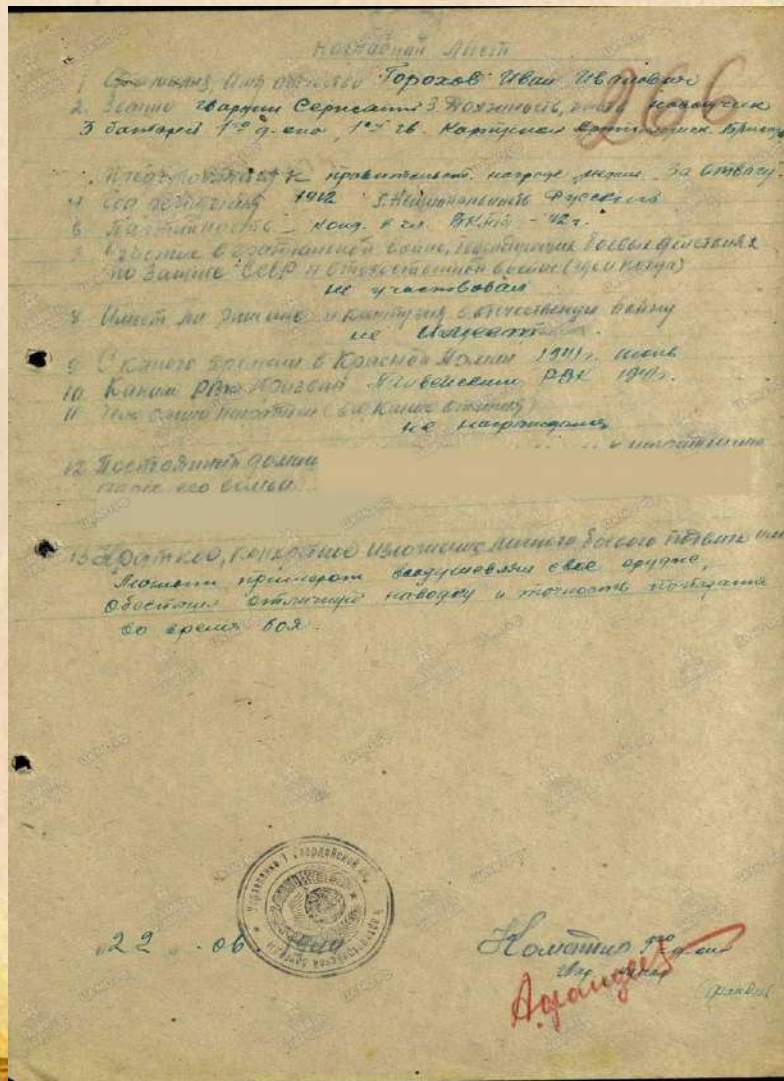 Наградной Лист
266
1 Фамилия, Имя отчество Горохов Иван Иванович
2. Звание Гвардии Сержант 3 Должность, часть наводчик
3 батареи 1го д-она, 1ой гв. Артиллерийск. Бригады
Представляется к правительств. награде медаль За отвагу.
4 Год рождения 1912 5. Национальность Русский
6 Партийность канд. в чл. ВКПб - 42 г.
7 Участие в гражданской войне, последующих боевых действиях
по Защите СССР и Отечественной войне (где и когда)
не участвовал
8 Имеет ли ранения и контузии в отечественную войну
не имеет.
9 С какого времени в Красной Армии 1941 г. июнь
10 Каким РВК призван РВК 1941 г.
11 Чем ранее награжден (за какие отличия)
не награждался
12 Постоянный домаш
его семьи
13 Краткое, конкретное изложение личного боевого подвига или
Личным примером воодушевлял свое орудие,
обеспечил отличную наводку и точность попадания
во время боя.
22 . 06 1944